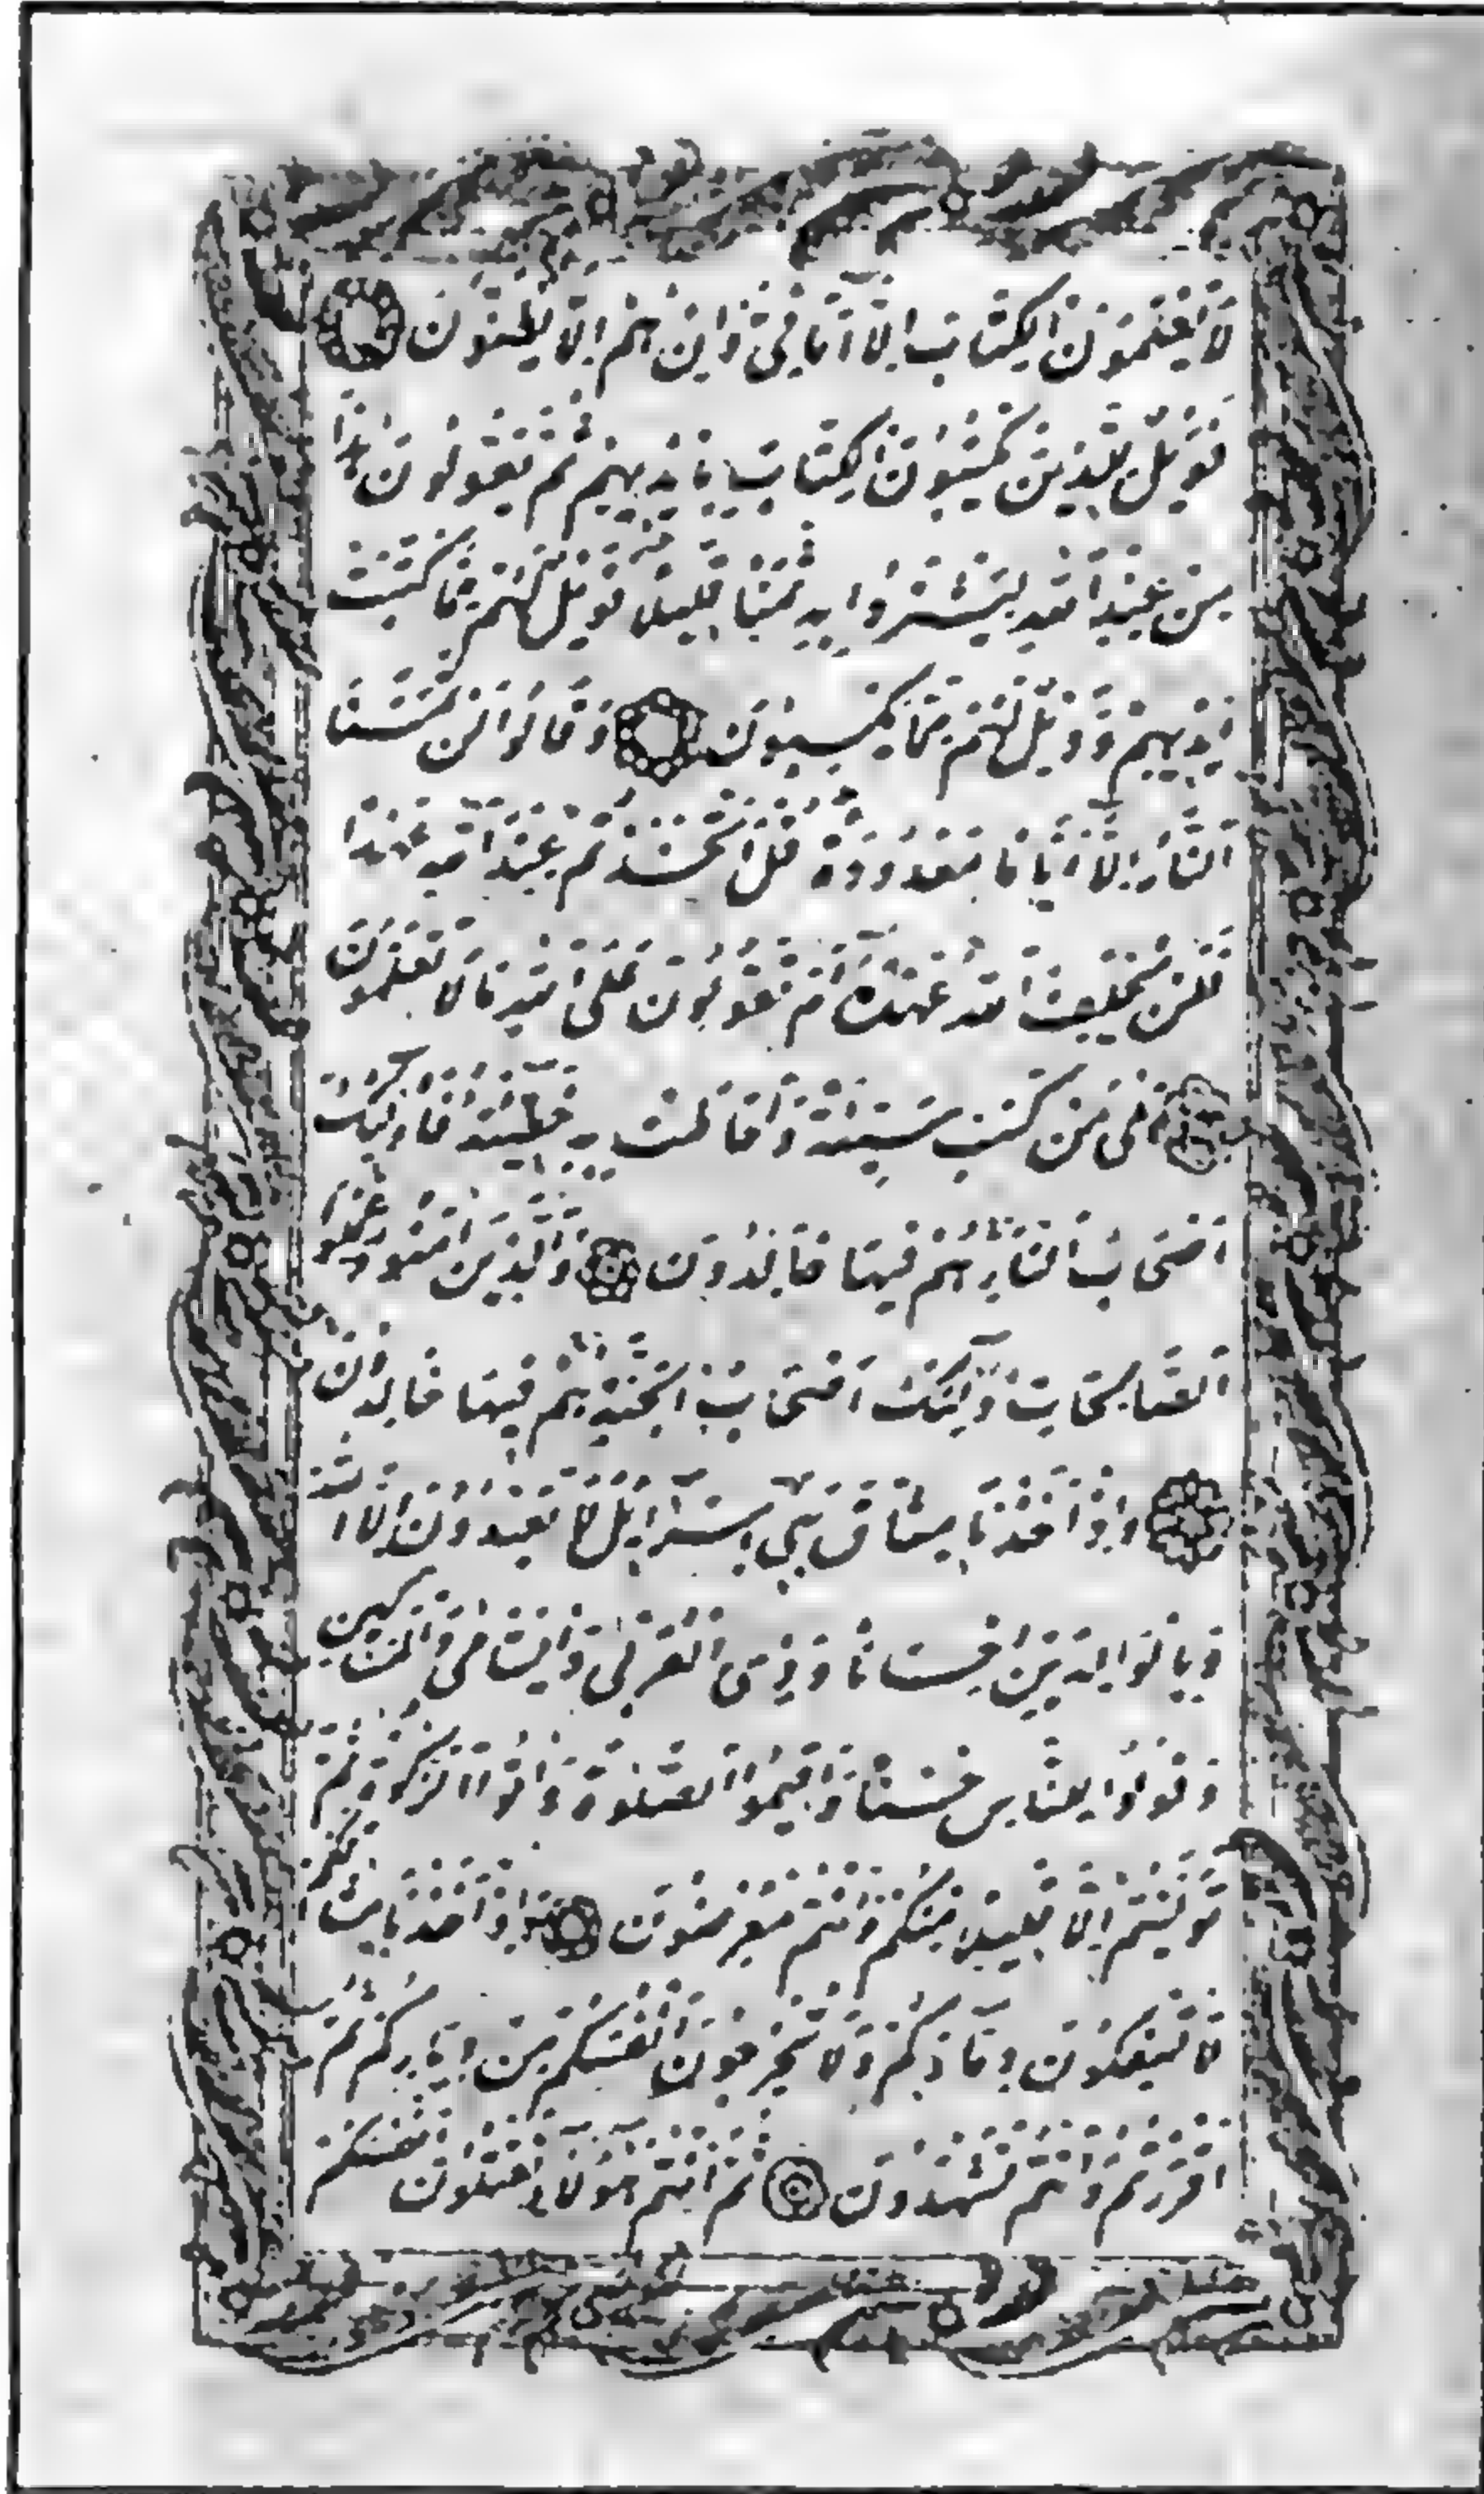 لَا يَعْلَمُونَ الْكِتَابَ اِلَّا اَمَانِىَّ وَاِنْ هُمْ اِلَّا يَظُنُّونَ
فَوَيْلٌ لِلَّذِينَ يَكْتُبُونَ الْكِتَابَ بِاَيْدِيهِمْ ثُمَّ يَقُولُونَ هٰذَا
مِنْ عِنْدِ اللّٰهِ لِيَشْتَرُوا بِهِ ثَمَنًا قَلِيلًا فَوَيْلٌ لَهُمْ مِمَّا كَتَبَتْ
اَيْدِيهِمْ وَوَيْلٌ لَهُمْ مِمَّا يَكْسِبُونَ وَقَالُوا لَنْ تَمَسَّنَا
النَّارُ اِلَّا اَيَّامًا مَعْدُودَةً قُلْ اَتَّخَذْتُمْ عِنْدَ اللّٰهِ عَهْدًا
فَلَنْ يُخْلِفَ اللّٰهُ عَهْدَهُ اَمْ تَقُولُونَ عَلَى اللّٰهِ مَا لَا تَعْلَمُونَ
بَلٰى مَنْ كَسَبَ سَيِّئَةً وَاَحَاطَتْ بِهِ خَطِيئَتُهُ فَاُولٰئِكَ
اَصْحَابُ النَّارِ هُمْ فِيهَا خَالِدُونَ وَالَّذِينَ اٰمَنُوا وَعَمِلُوا
الصَّالِحَاتِ اُولٰئِكَ اَصْحَابُ الْجَنَّةِ هُمْ فِيهَا خَالِدُونَ
وَاِذْ اَخَذْنَا مِيثَاقَ بَنِى اِسْرَائِلَ لَا تَعْبُدُونَ اِلَّا اللّٰهَ
وَبِالْوَالِدَيْنِ اِحْسَانًا وَذِى الْقُرْبٰى وَالْيَتَامٰى وَالْمَسَاكِينِ
وَقُولُوا لِلنَّاسِ حُسْنًا وَاَقِيمُوا الصَّلٰوةَ وَاٰتُوا الزَّكٰوةَ ثُمَّ
تَوَلَّيْتُمْ اِلَّا قَلِيلًا مِنْكُمْ وَاَنْتُمْ مُعْرِضُونَ وَاِذْ اَخَذْنَا مِيثَاقَكُمْ
لَا تَسْفِكُونَ دِمَاءَكُمْ وَلَا تُخْرِجُونَ اَنْفُسَكُمْ مِنْ دِيَارِكُمْ ثُمَّ
اَقْرَرْتُمْ وَاَنْتُمْ تَشْهَدُونَ ثُمَّ اَنْتُمْ هٰؤُلَاءِ تَقْتُلُونَ اَنْفُسَكُمْ